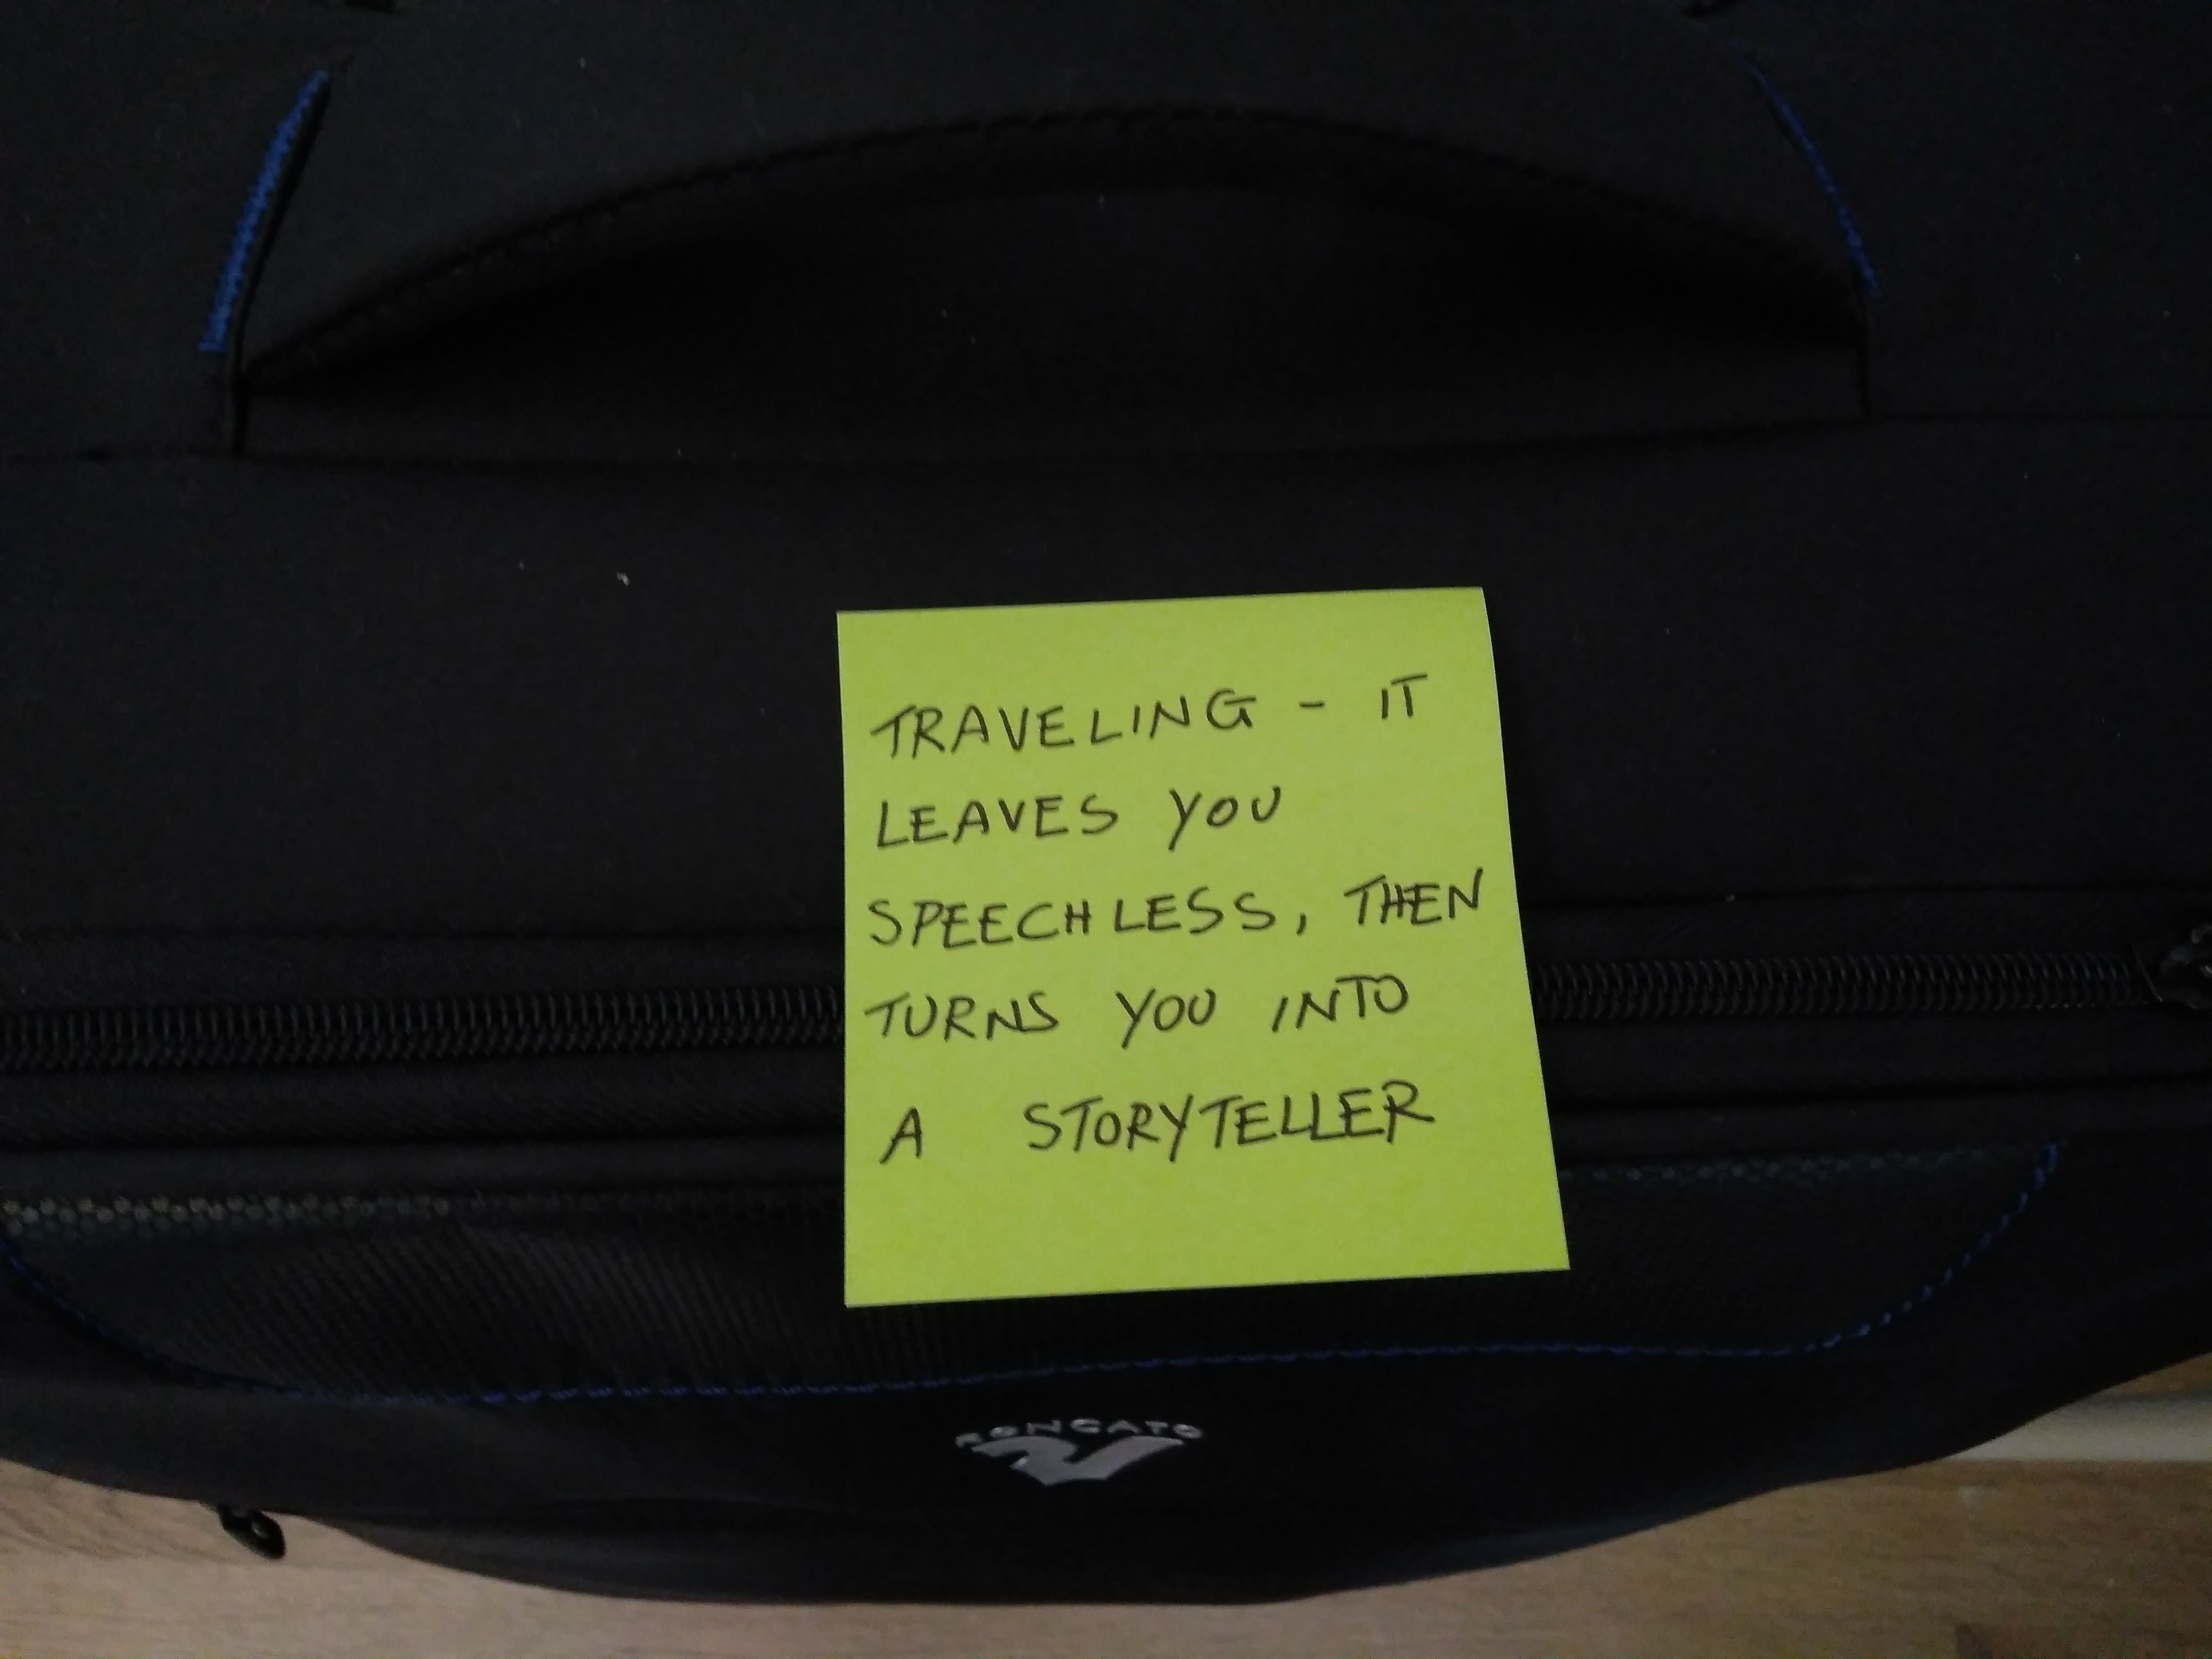 TRAVELING - IT
LEAVES YOU
SPEECHLESS, THEN
TURNS YOU INTO
A STORYTELLER
RONCATO